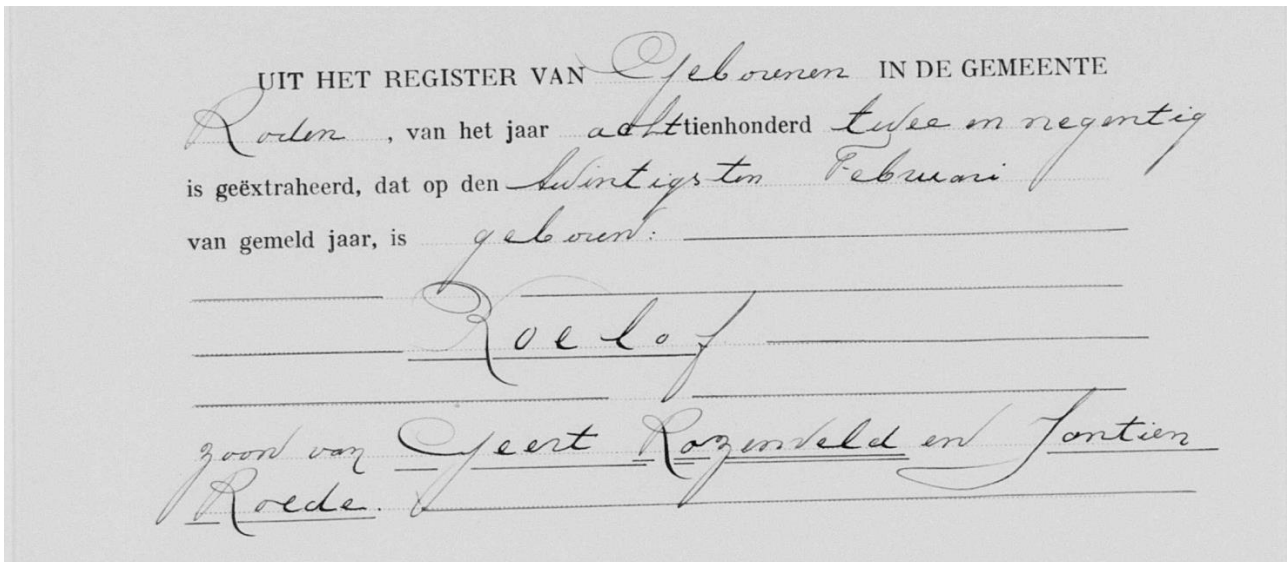 UIT HET REGISTER VAN Geborenen IN DE GEMEENTE
Roden, van het jaar achttienhonderd twee en negentig
is geëxtraheerd, dat op den twintigsten Februari
van gemeld jaar, is geboren:
Roelof
zoon van Geert Rozenveld en Jantien
Roede.